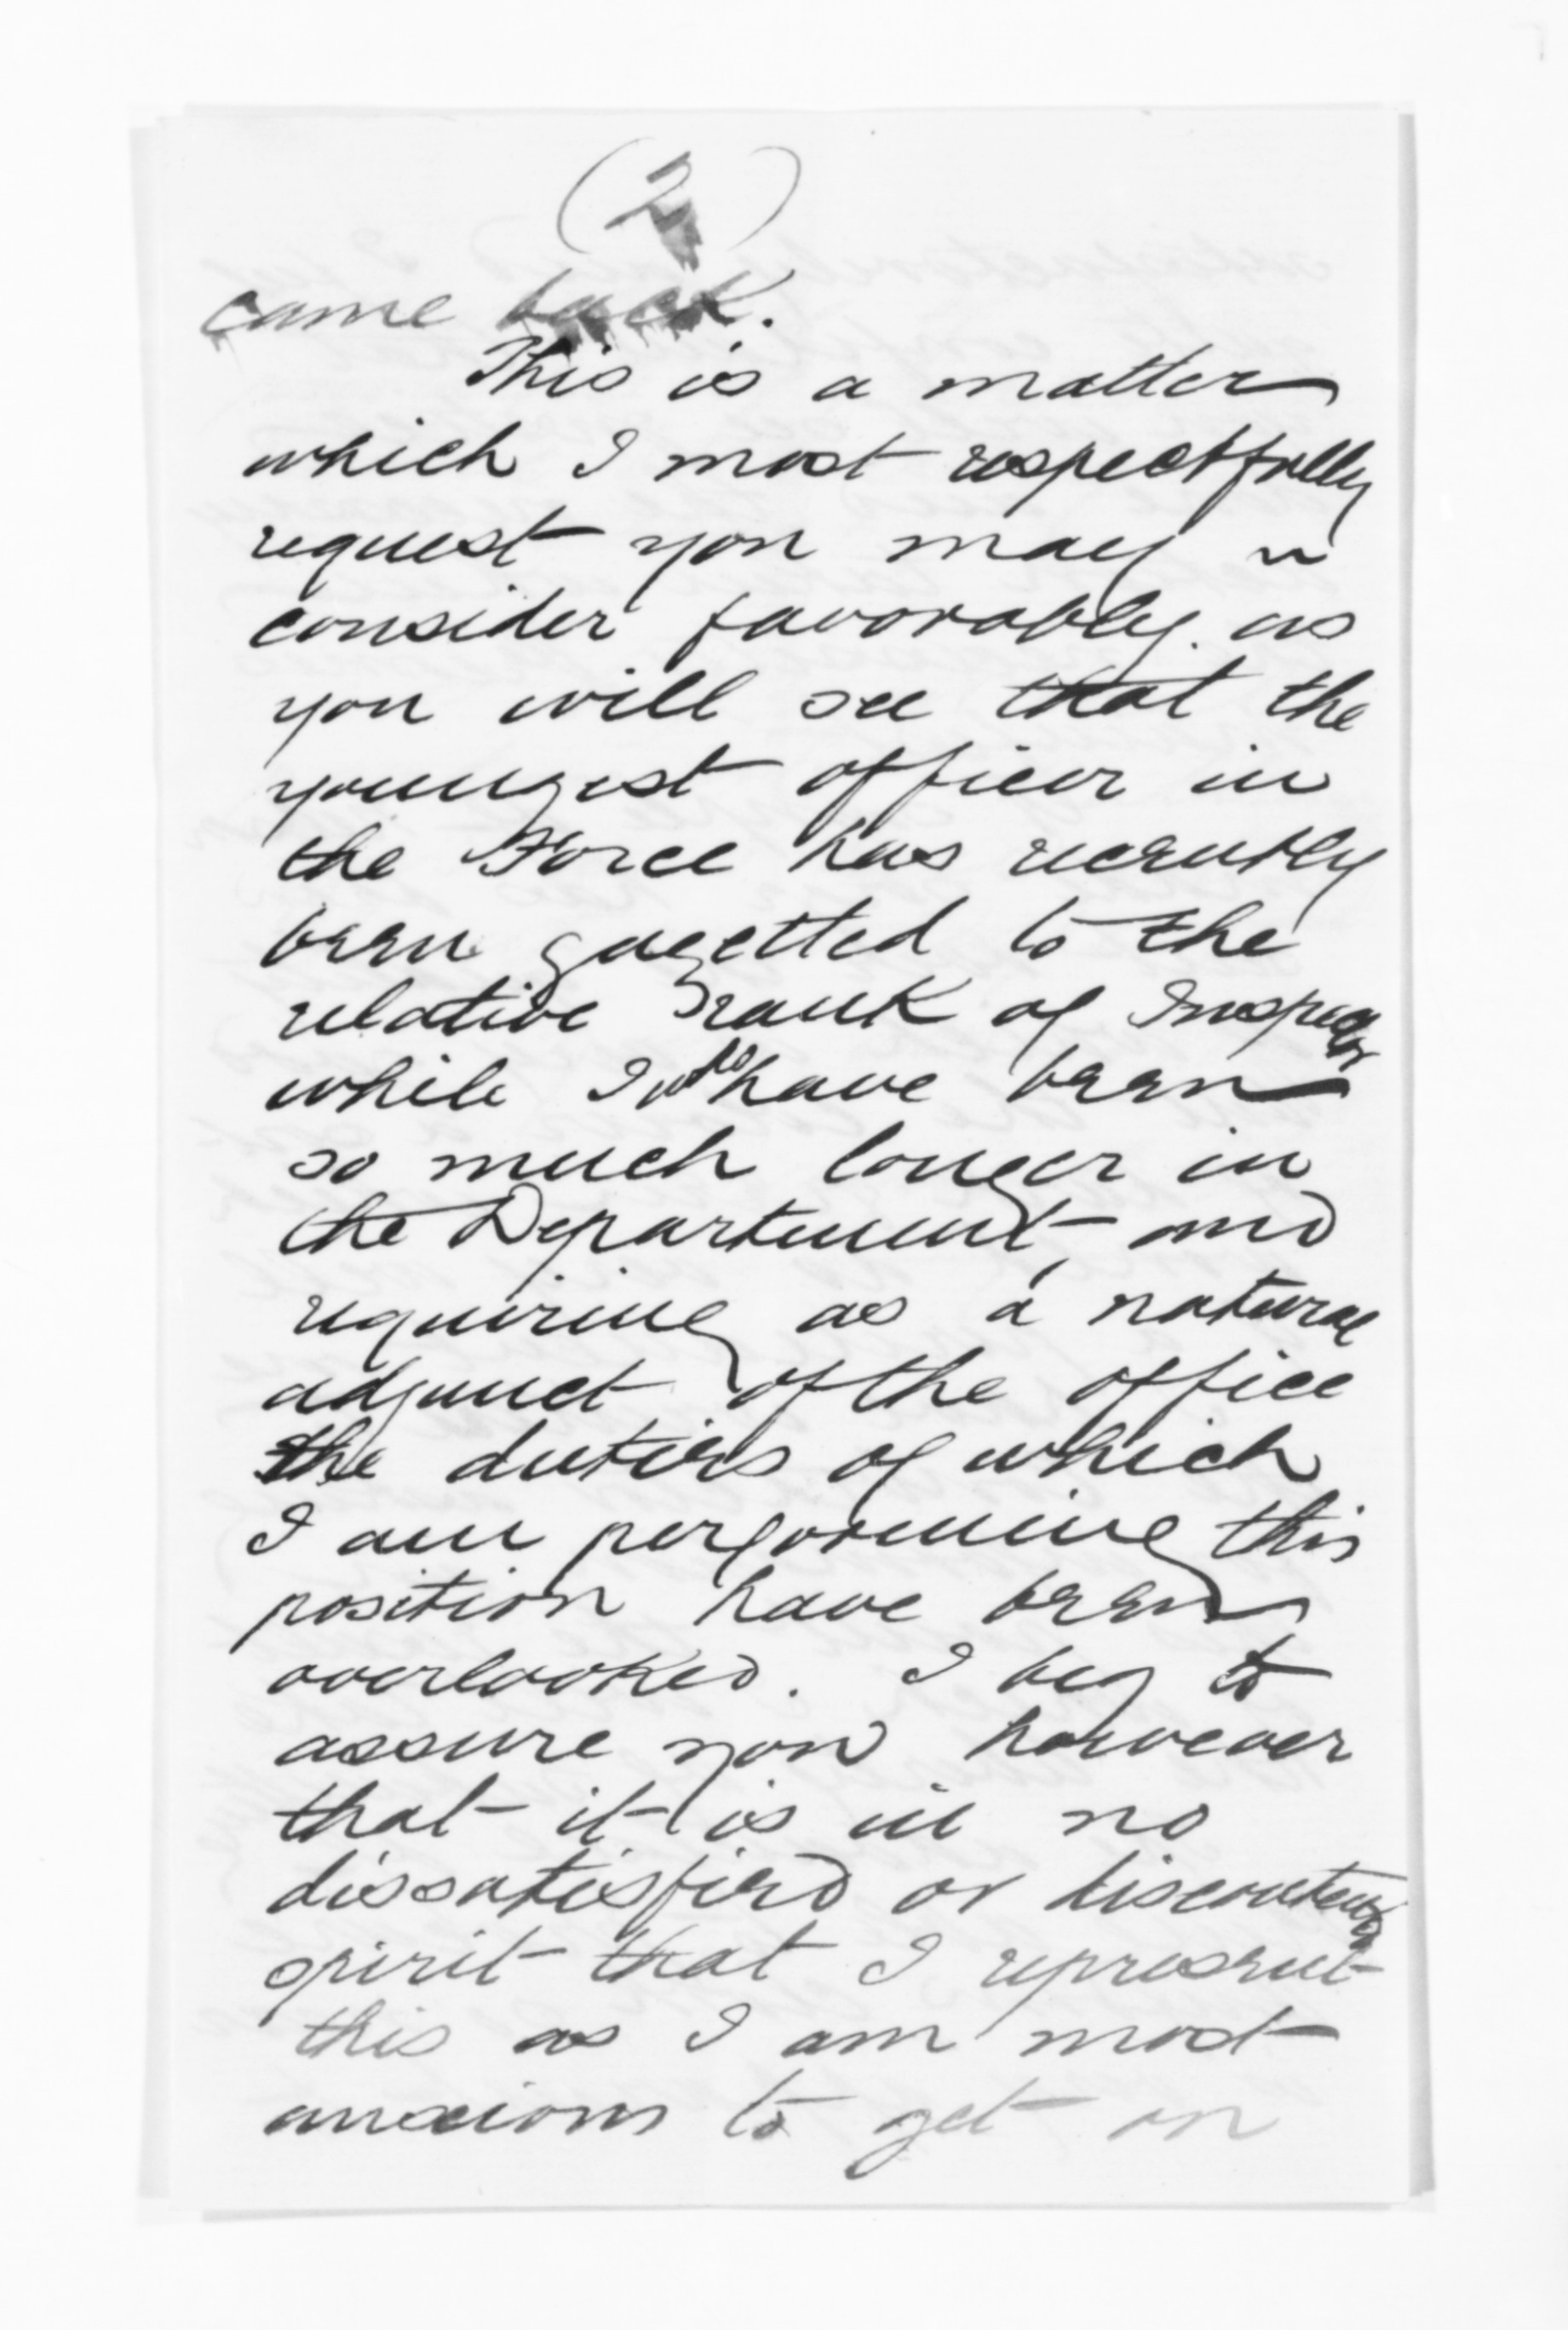 (2)
came back.
This is a matter
which I most respectfully
request you may
consider favorably. as
you will see that the
youngest officer in
the Force has recently
been gazetted to the
relative rank of Inspector
while I who have been
so much longer in
the Department, and
requiring as a natural
adjunct of the office
the duties of which
I am performing this
position have been
overlooked. I beg to
assure you however
that it is in no
dissatisfied or discontented
spirit that I represent
this as I am most
anxious to get on